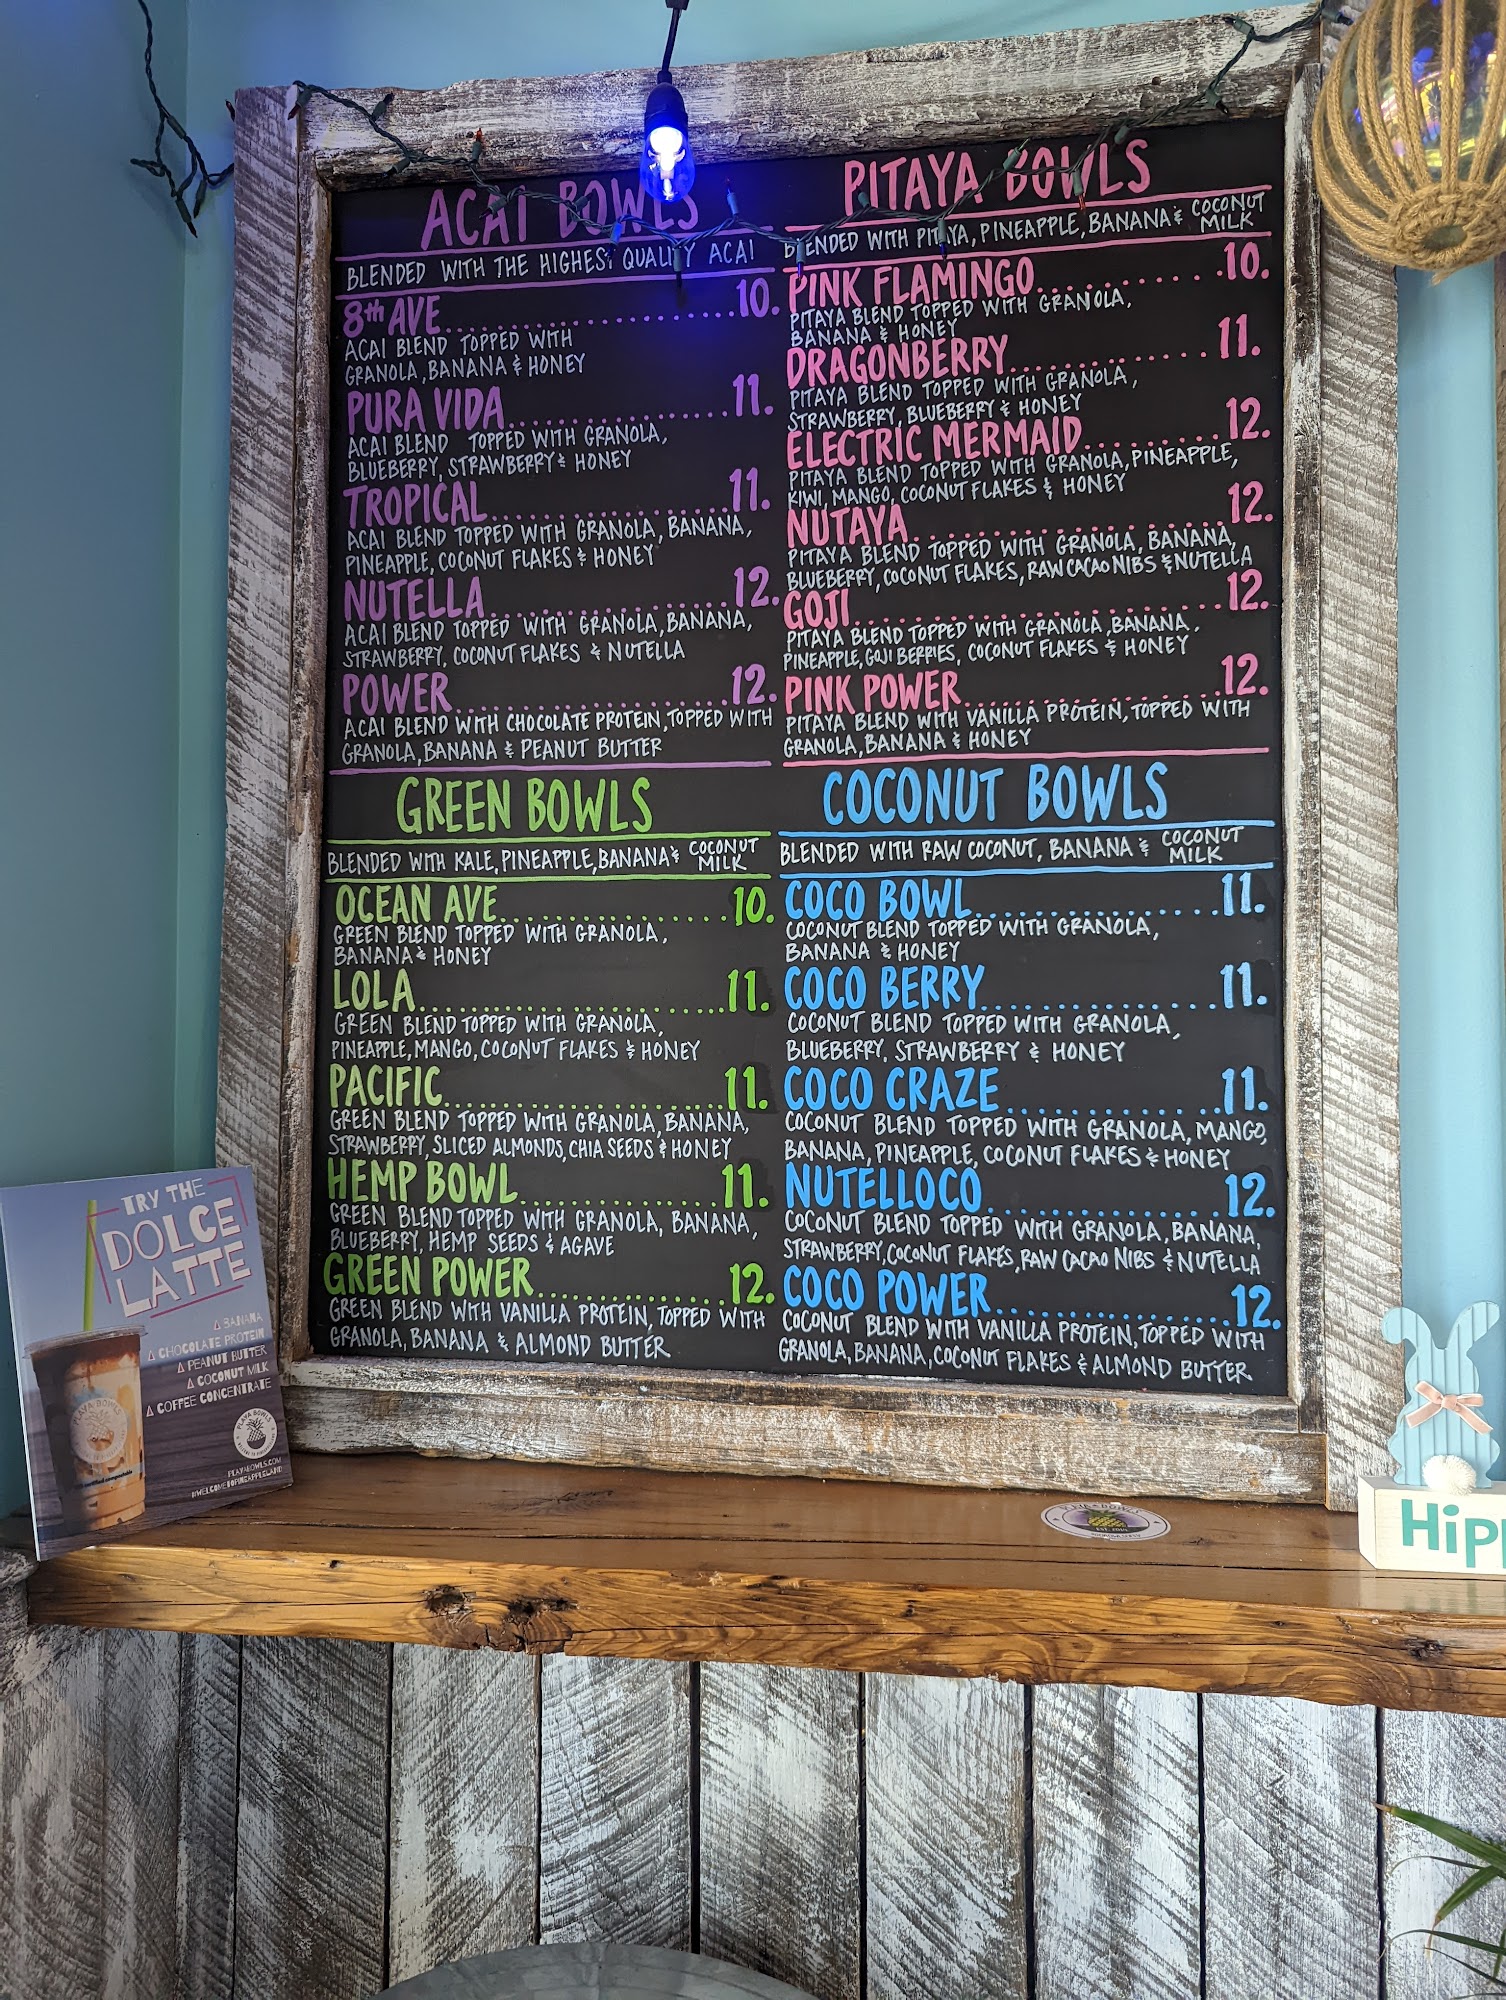 ACAI BOWLS
BLENDED WITH THE HIGHEST QUALITY ACAI
8th AVE....................10.
ACAI BLEND TOPPED WITH
GRANOLA, BANANA & HONEY
PURA VIDA...............11.
ACAI BLEND TOPPED WITH GRANOLA,
BLUEBERRY, STRAWBERRY & HONEY
TROPICAL................11.
ACAI BLEND TOPPED WITH GRANOLA, BANANA,
PINEAPPLE, COCONUT FLAKES & HONEY
NUTELLA.................12.
ACAI BLEND TOPPED WITH GRANOLA, BANANA,
STRAWBERRY, COCONUT FLAKES & NUTELLA
POWER...................12.
ACAI BLEND WITH CHOCOLATE PROTEIN, TOPPED WITH
GRANOLA, BANANA & PEANUT BUTTER
PITAYA BOWLS
BLENDED WITH PITAYA, PINEAPPLE, BANANA & COCONUT
MILK
PINK FLAMINGO............10.
PITAYA BLEND TOPPED WITH GRANOLA,
BANANA & HONEY
DRAGONBERRY.............11.
PITAYA BLEND TOPPED WITH GRANOLA,
STRAWBERRY, BLUEBERRY & HONEY
ELECTRIC MERMAID.........12.
PITAYA BLEND TOPPED WITH GRANOLA, PINEAPPLE,
KIWI, MANGO, COCONUT FLAKES & HONEY
NUTAYA..................12.
PITAYA BLEND TOPPED WITH GRANOLA, BANANA,
BLUEBERRY, COCONUT FLAKES, RAW CACAO NIBS & NUTELLA
GOJI....................12.
PITAYA BLEND TOPPED WITH GRANOLA, BANANA,
PINEAPPLE, GOJI BERRIES, COCONUT FLAKES & HONEY
PINK POWER..............12.
PITAYA BLEND WITH VANILLA PROTEIN, TOPPED WITH
GRANOLA, BANANA & HONEY
GREEN BOWLS
BLENDED WITH KALE, PINEAPPLE, BANANA & COCONUT
MILK
OCEAN AVE...............10.
GREEN BLEND TOPPED WITH GRANOLA,
BANANA & HONEY
LOLA....................11.
GREEN BLEND TOPPED WITH GRANOLA,
PINEAPPLE, MANGO, COCONUT FLAKES & HONEY
PACIFIC.................11.
GREEN BLEND TOPPED WITH GRANOLA, BANANA,
STRAWBERRY, SLICED ALMONDS, CHIA SEEDS & HONEY
HEMP BOWL...............11.
GREEN BLEND TOPPED WITH GRANOLA, BANANA,
BLUEBERRY, HEMP SEEDS & AGAVE
GREEN POWER.............12.
GREEN BLEND WITH VANILLA PROTEIN, TOPPED WITH
GRANOLA, BANANA & ALMOND BUTTER
COCONUT BOWLS
BLENDED WITH RAW COCONUT, BANANA & COCONUT
MILK
COCO BOWL...............11.
COCONUT BLEND TOPPED WITH GRANOLA,
BANANA & HONEY
COCO BERRY..............11.
COCONUT BLEND TOPPED WITH GRANOLA,
BLUEBERRY, STRAWBERRY & HONEY
COCO CRAZE..............11.
COCONUT BLEND TOPPED WITH GRANOLA, MANGO,
BANANA, PINEAPPLE, COCONUT FLAKES & HONEY
NUTELLOCO...............12.
COCONUT BLEND TOPPED WITH GRANOLA, BANANA,
STRAWBERRY, COCONUT FLAKES, RAW CACAO NIBS & NUTELLA
COCO POWER..............12.
COCONUT BLEND WITH VANILLA PROTEIN, TOPPED WITH
GRANOLA, BANANA, COCONUT FLAKES & ALMOND BUTTER
TRY THE
DOLCE
LATTE
BANANA
CHOCOLATE PROTEIN
PEANUT BUTTER
COCONUT MILK
COFFEE CONCENTRATE
PLAYA BOWLS
PLAYABOWLS.COM
#WELCOMETOPINEAPPLELAND
PLAYA BOWLS
EST. 2014
Hipp